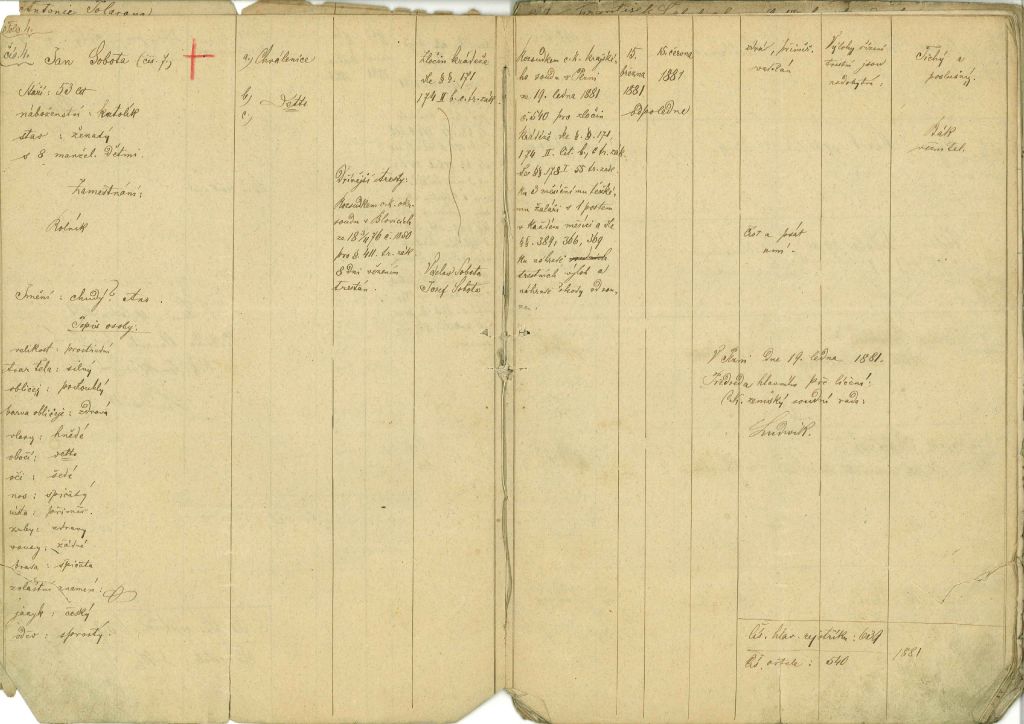 Antonie
Folio 4.
Čís. 4. Jan Sobota (čís. 7.)
Stáří: 53 let
náboženství: katolík
stav: ženatý
s 8 manžel. dětmi.
Zaměstnání:
Rolník
Jmění: chudý
Popis osoby:
velikost: prostřední
tvar těla: silný
obličej: podlouhlý
barva obličeje: zdravá
vlasy: hnědé
obočí: detto
oči: šedé
nos: špičatý
ústa: přiměř.
zuby: zdravy
vousy: žádné
brada: špičatá
zvláštní znamení:
jazyk: český
oděv: sprostý.
a) Chválenice
b) detto
c)
Dřívější tresty:
Rozsudkem c.k. okr.
soudu v Blovicích
pro §. 411. tr. zák
8 dní vězením
trestán.
Zločin krádeže
dle §§. 171
174 II b. c. tr. zák.
Václav Sobota
Josef Sobota
Rozsudkem c.k. krajské-
ho soudu v Plzni
ze 19. ledna 1881
č. 540 pro zločin
krádeže dle §. §. 171,
174 II. lit. b, c tr. zák.
dle §§. 178 I 55 tr. zák.
ku 2 měsíčnímu těžké-
mu žaláři s 1 postem
v každém měsíci a dle
§§. 389, 366, 369
ku náhradě
trestních výloh a
náhradě škody odsou-
zen.
15.
března
1881
15. června
1881
odpoledne
zdráv, přiměř.
Výlohy řízení
trestní jsou
nedobytné.
Tichý a
poslušný.
Bák
Číst a psát
umí.
V Plzni dne 19. ledna 1881.
Předseda hlavního pře líčení:
C.k. zemský soudní rada:
Ludwik.
Čís. hlav. rejstříku: 629
Čís. odděle: 540
1881